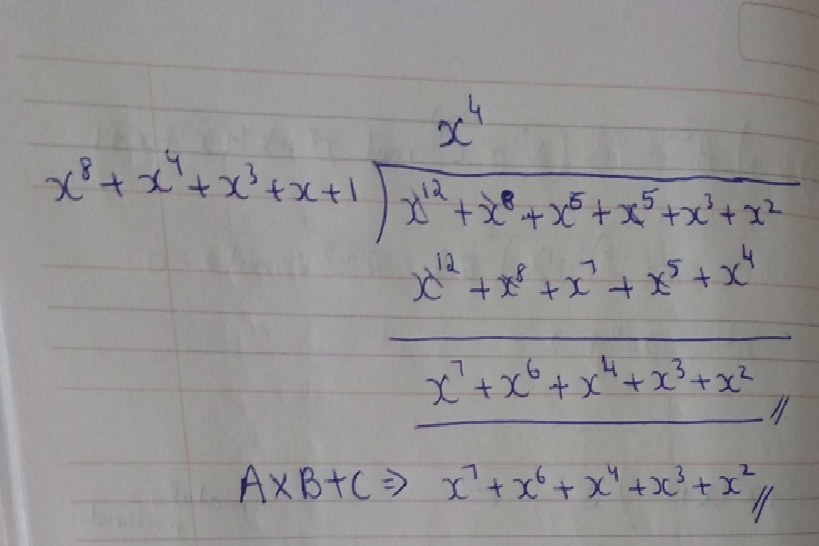 x⁴
x⁸ + x⁴ + x³ + x + 1 ) x¹² + x⁸ + x⁶ + x⁵ + x³ + x²
x¹² + x⁸ + x⁷ + x⁵ + x⁴
x⁷ + x⁶ + x⁴ + x³ + x² //
A×B+C ⇒ x⁷ + x⁶ + x⁴ + x³ + x² //